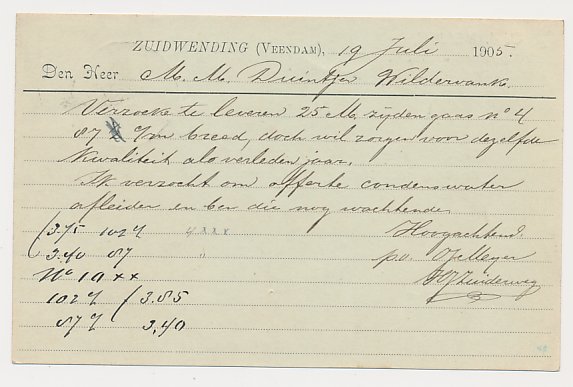 ZUIDWENDING (VEENDAM), 19 Juli 1905.
Den Heer M. M. Duintjer Wildervank.
Verzoeke te leveren 25 M. zijden gaas no 4
87 c/m breed, doch wil zorgen voor dezelfde
kwaliteit als verleden jaar.
Ik verzocht om offerte condenswater
afleider en ben die nog wachtende
Hoogachtend
(3.75 102 4xxx
(3.40 87
po. OJMeyer
No 10 xx
102 (3.85
87 3,40